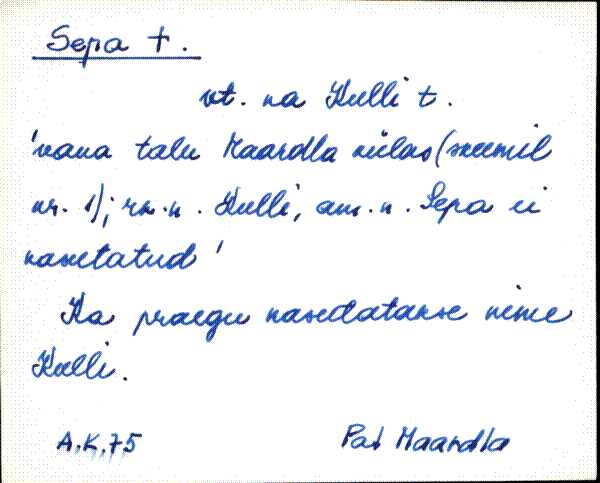 Sepa t.
vt. ka Kulli t.
'vana talu Maardla külas (skeemil
nr. 1); rk.n. Kulli, am.n. Sepa ei
kasutatud'
Ka praegu kasutatakse nime
Kulli.
A.K.75 Pal Maardla